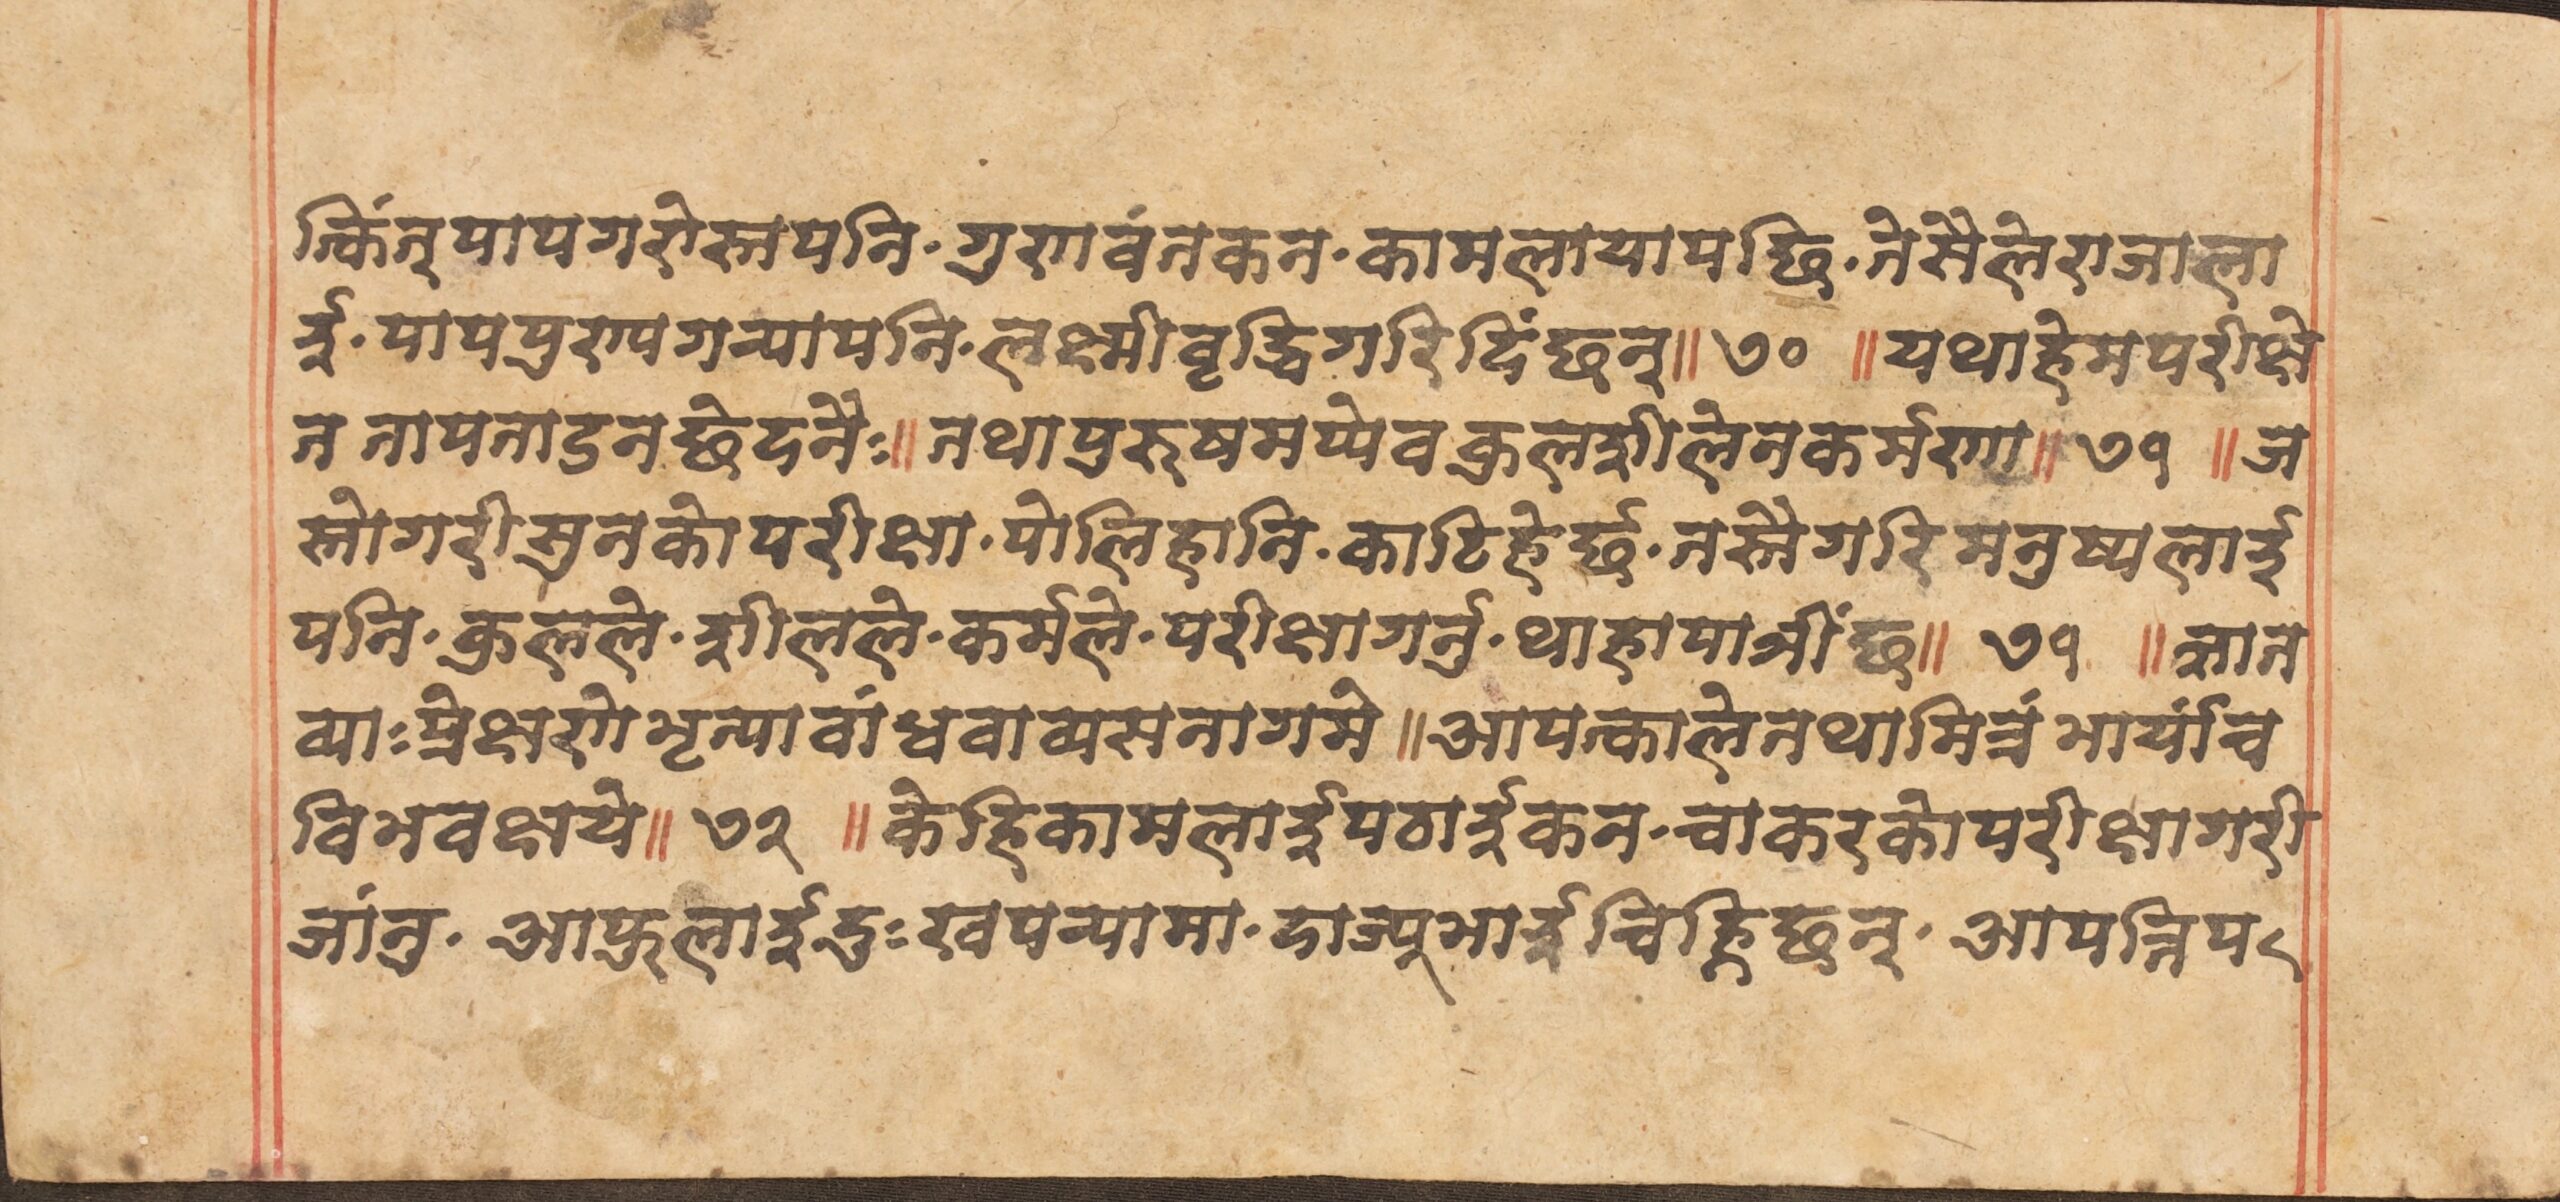 र्त्किंन् पाप गरोस्तापनि· गुणवंतकन· काममलायापछि· तेसैले राजाला
ई· पाप पुण्य गर्‍यापनि· लक्ष्मी वृद्धि गरि दिंछन् ॥ ७० ॥ यथा हेम परीक्षे
त तापताडनछेदनैः ॥ तथा पुरुषमप्येव कुलशीलेन कर्मणा ॥ ७१ ॥ ज
स्तो गरी सुनको परीक्षा· पोलि हानि· काटि हेर्छ· तस्तै गरि मनुष्यलाई
पनि· कुलले· शीलले· कर्मले· परीक्षा गर्नु· थाहा पाइन्छ ॥ ७१ ॥ ज्ञात
व्याः प्रेक्षणे भृत्या वांधवा व्यसनागमे ॥ आपत्काले तथा मित्रं भार्यां च
विभवक्षये ॥ ७२ ॥ केहि कामलाई पठाईकन· चाकरको परीक्षा गरी
जांनु· आफुलाई दुःख पर्‍यामा· दाज्यूभाई चिह्निछन्· आपत्ति पर